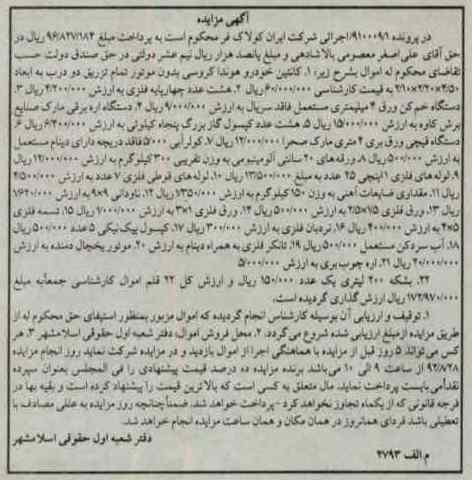 آگهی مزایده
در پرونده ۹۱۰۰۰۹/۱ اجرائی شرکت ایران کولاک فر محکوم است به پرداخت مبلغ ۹۶/۸۲۷/۱۸۴ ریال در
حق آقای علی اصغر معصومی بالاشادهی و مبلغ پانصد هزار ریال نیم عشر دولتی در حق صندوق دولت حسب
تقاضای محکوم له اموال بشرح زیر: ۱. کانتین خودرو هوندا کروسی بدون موتور تمام تزریق دو درب به ابعاد
۲/۱۰×۲/۲۰×۴/۵۰ به قیمت کارشناسی ۶۰/۰۰۰/۰۰۰ ریال ۲. هشت عدد چهارپایه فلزی به ارزش ۴/۲۰۰/۰۰۰ ریال ۳.
دستگاه خم کن ورق ۴ میلیمتری مستعمل فاقد سریال به ارزش ۹/۰۰۰/۰۰۰ ریال ۴. دستگاه اره برقی مارک صنایع
برش کاوه به ارزش ۱۵/۰۰۰/۰۰۰ ریال ۵. هشت عدد کپسول گاز بزرگ پنجاه کیلوئی به ارزش ۶/۴۰۰/۰۰۰ ریال ۶.
دستگاه قیچی ورق بری ۴ متری مارک صحرا ۱۲/۰۰۰/۰۰۰ ریال ۷. کولرآبی ۵۰۰۰ فاقد دریچه دارای دینام مستعمل
به ارزش ۵۰۰/۰۰۰ ریال ۸. ورقه‌های ۲۰ سانتی آلومینیومی به وزن تقریبی ۳۰۰ کیلوگرم به ارزش ۱۲/۰۰۰/۰۰۰ ریال
۹. لوله‌های فلزی ۱ اینچی ۲۵ عدد به مبلغ ۱۳/۵۰۰/۰۰۰ ریال ۱۰. لوله‌های قوطی فلزی ۷ عدد به ارزش ۴/۵۰۰/۰۰۰
ریال ۱۱. مقداری ضایعات آهنی به وزن ۱۵۰ کیلوگرم به ارزش ۷۳۵۰/۰۰۰ ریال ۱۲. ناودانی ۹×۹ به ارزش ۱۶۲۰/۰۰۰
ریال ۱۳. ورق فلزی ۲/۵×۷/۵ به ارزش ۵۰۰/۰۰۰ ریال ۱۴. ورق فلزی ۱×۳ به ارزش ۷۰۰/۰۰۰ ریال ۱۵. تسمه فلزی
۴×۵ به ارزش ۴۰۰/۰۰۰ ریال ۱۶. نردبان فلزی به ارزش ۳۰۰/۰۰۰ ریال ۱۷. کپسول پیک نیکی ۵ عدد ۵۰۰/۰۰۰ ریال
۱۸. آب سردکن مستعمل ۵۰۰/۰۰۰ ریال ۱۹. تانکر فلزی به همراه دینام به ارزش ۲۰. موتور یخچال دمنده به ارزش
۲۰/۰۰۰/۰۰۰ ریال ۲۱. اره چوب بری به ارزش ۵/۰۰۰/۰۰۰
۲۲. بشکه ۲۰۰ لیتری یک عدد ۱۵۰/۰۰۰ ریال و ارزش کل ۲۲ قلم اموال کارشناسی جمعاً به مبلغ
۱۷۲/۹۷۰/۰۰۰ ریال ارزش گذاری گردیده است.
۱. توقیف و ارزیابی آن بوسیله کارشناس انجام گردیده که اموال مزبور بمنظور استیفای حق محکوم له از
طریق مزایده از مبلغ ارزیابی شده شروع می‌گردد. ۲. محل فروش اموال، دفتر شعبه اول حقوقی اسلامشهر ۳. هر
کس می‌تواند ۵ روز قبل از مزایده با هماهنگی اجرا از اموال بازدید و در مزایده شرکت نماید روز انجام مزایده
۹۲/۸/۲۸ از ساعت ۹ الی ۱۰ می‌باشد برنده مزایده ده درصد قیمت پیشنهادی را فی المجلس بعنوان سپرده
نقدأ می‌بایست پرداخت نماید. مال متعلق به کسی است که بالاترین قیمت را پیشنهاد کرده است و بقیه بها در
فرجه قانونی که از یکماه تجاوز نخواهد کرد - پرداخت خواهد شد. ضمناً چنانچه روز مزایده به عللی مصادف با
تعطیلی باشد فردای همانروز در همان مکان و همان ساعت مزایده انجام خواهد شد.
دفتر شعبه اول حقوقی اسلامشهر
م.الف ۲۷۹۳